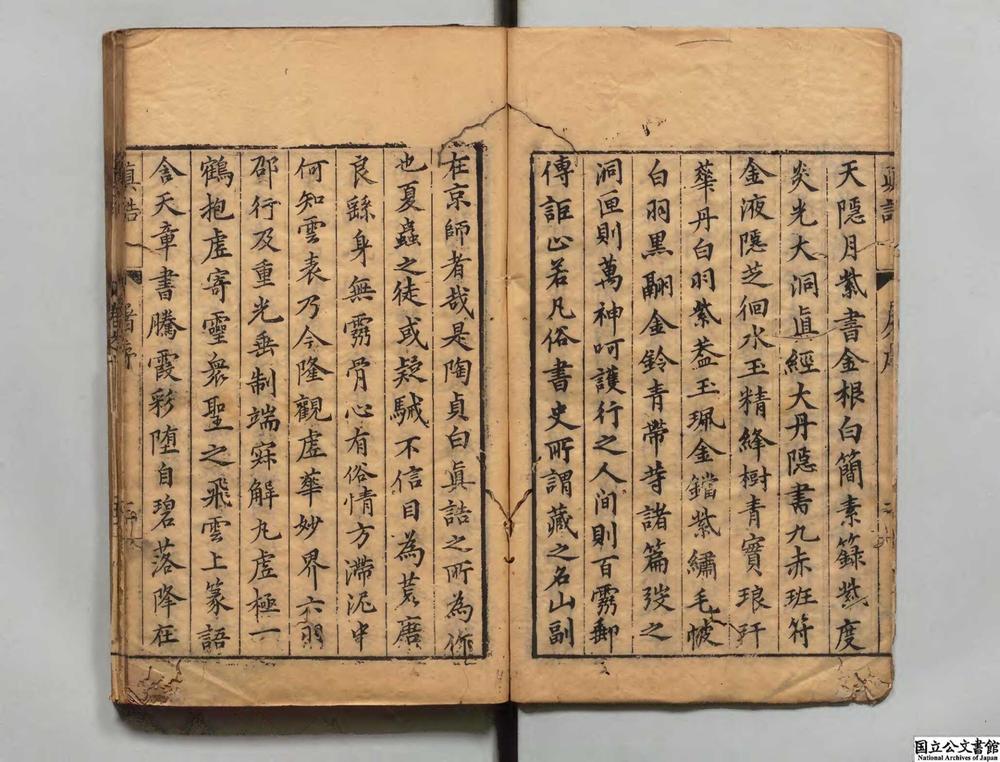 真誥
天隱月紫書金根白簡素籙紫度
炎光大洞眞經大丹隱書九赤班符
金液隱芝徊水玉精絳樹青實琅玕
華丹白羽紫蓋玉珮金鐺紫繡毛帔
白羽黑翮金鈴青帶荨諸篇弢之
洞匣則萬神呵護行之人间則百靈郵
傳詎止若凡俗書史所謂藏之名山副
在京師者哉是陶貞白眞誥之所為作
也夏蟲之徒或疑駴不信目為荒唐
良繇身無靈骨心有俗情方滯泥中
何知雲表乃今隆觀虛華妙界六羽
邵行及重光垂制端寀解九虛極一
鶴抱虛寄靈衆聖之飛雲上篆語
含天章書騰霞彩墮自碧落降在
真誥
屠序
国立公文書館
National Archives of Japan